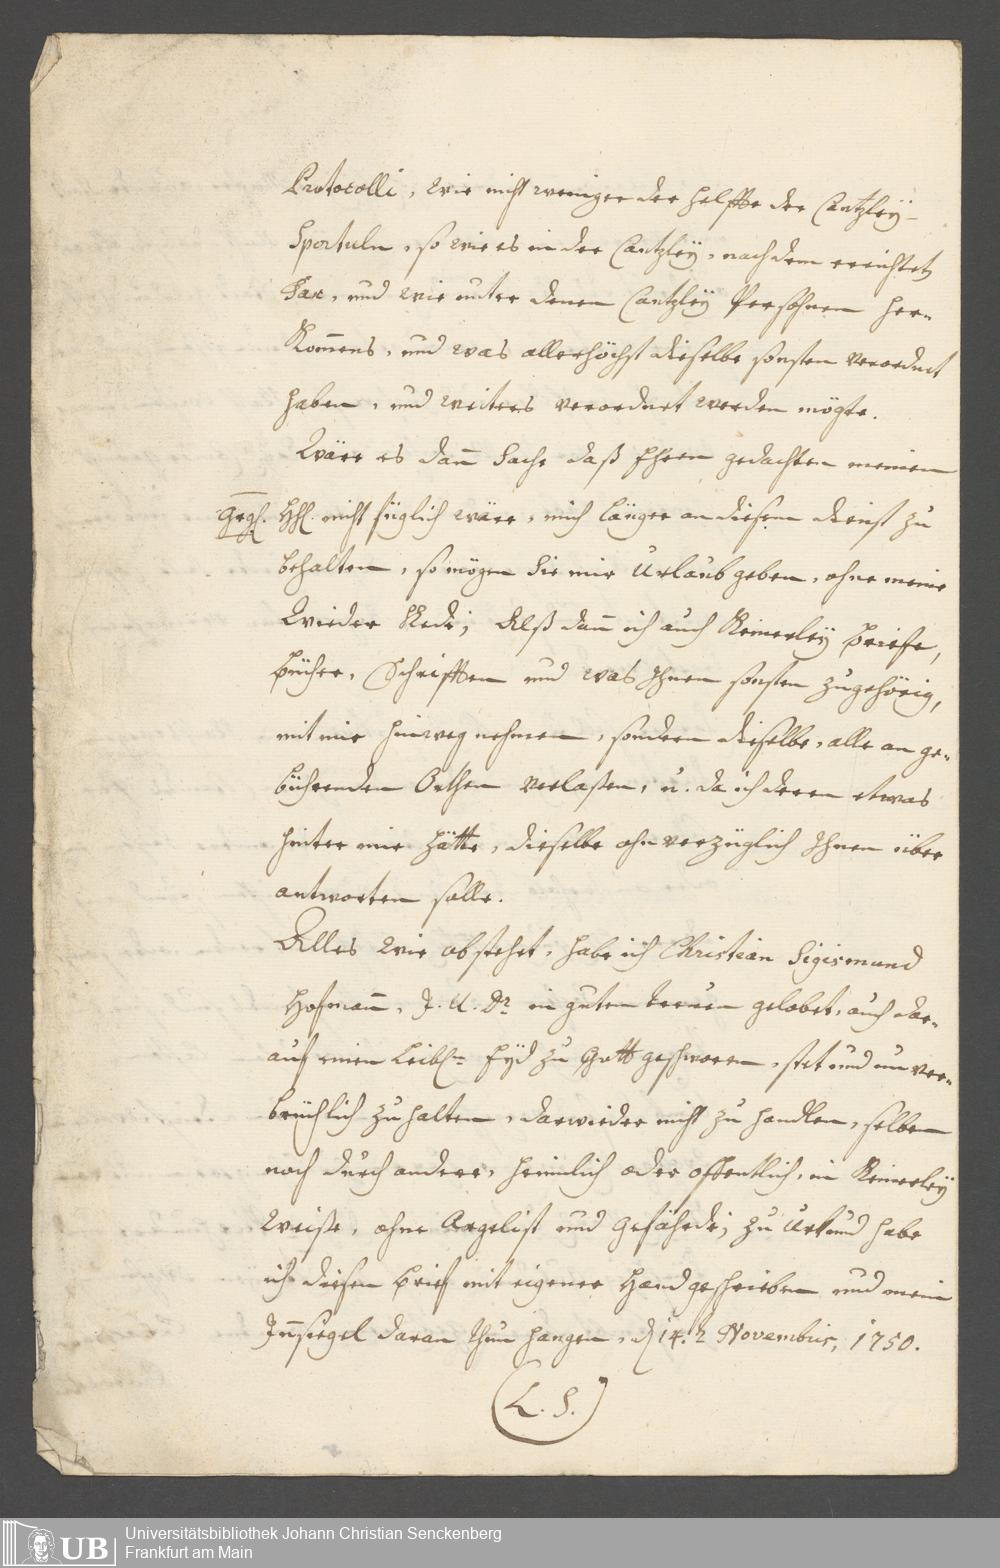 Protocolli, wie nicht weniger der helffte der Cantzleÿ-
Sportuln, so wie es in der Cantzleÿ, nach dem errichtet
Tax, und wie unter denen Cantzleÿ Persohnen her-
Kom̄ens, und was allerhöchst dieselbe sonsten verordnet
haben, und weiters verordnet werden mögte.
Wäre es dan̄ Sache daß Ehren gedachten meinen
Gdgh. HH. nicht füglich wäre, mich länger an diesem dienst zu
behalten, so mögen Sie mir Urlaub geben, ohne meine
Wieder Rede; Alß dan̄ ich auch Keinerleÿ Briefe,
Bücher, Schrifften und was Ihnen sonsten zugehörig,
mit mir hinweg nehmen, sondern dieselbe, alle an ge-
bührenden Orthen verlaßen, u. da ich deren etwas
hinter mir hätte, dieselbe ohnverzüglich Ihnen über
antworten solle.
Alles wie obstehet, habe ich Christian Sigismund
Hofman̄, J. U. Dr. in guten treuen gelobet, auch dar-
auf einen Leibl. Eÿd zu Gott geschworen, stet und unver-
brüchlich zu halten, darwieder nicht zu handlen, selben
noch durch andere, heimlich oder offentlich, in Keinerleÿ
Weiße, ohne Argelist und Gefährde; zu Urkund habe
ich diesen Brief mit eigener Hand geschrieben und mein
In̄siegel daran thun hangen, d. 14. Novembris, 1750.
(L. S.)
UB Universitätsbibliothek Johann Christian Senckenberg
Frankfurt am Main